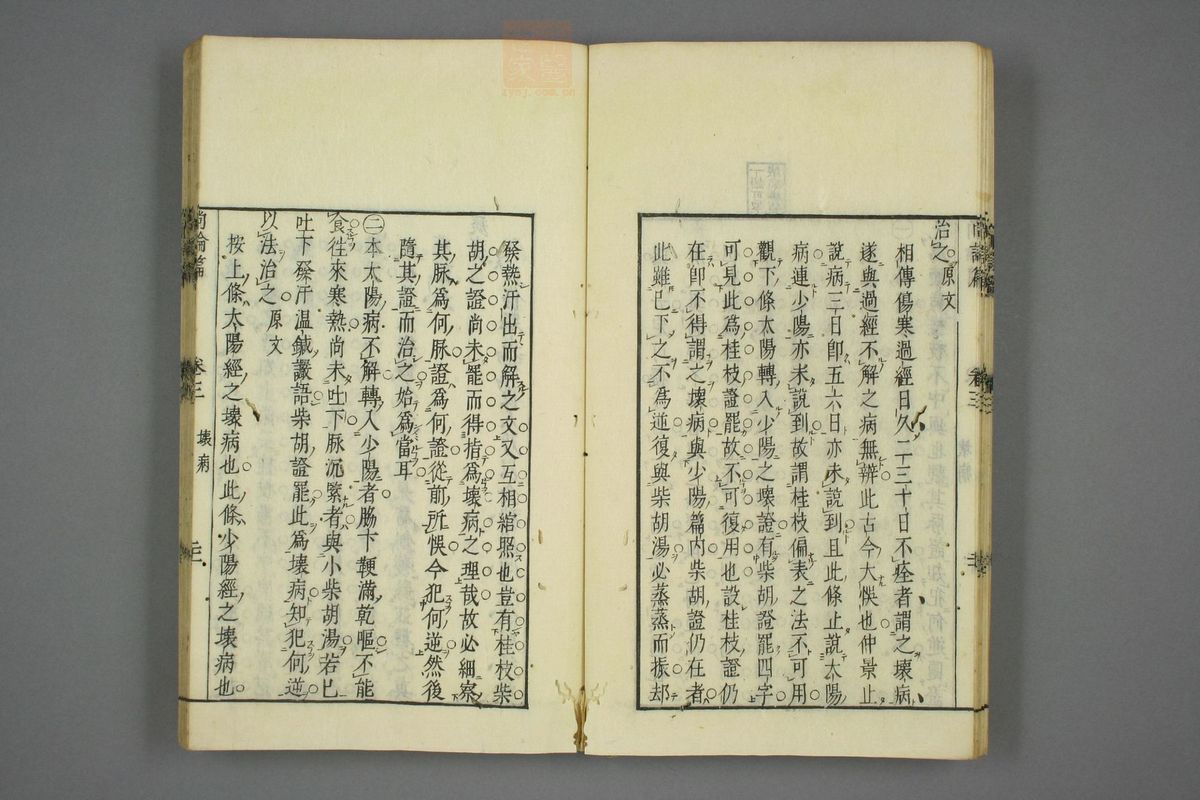 治之原文
相傳傷寒過經日久二三十日不痊者謂之壞病
遂與過經不解之病無辨此古今大悞也仲景止
說病三日即五六日亦未說到且此條止說太陽
病連少陽亦未說到故謂桂枝偏表之法不可用
觀下條太陽轉入少陽之壞證有柴胡證罷四字
可見此爲桂枝證罷故不可復用也設桂枝證仍
在卽不得謂之壞病與少陽篇內柴胡證仍在者
此雖已下之不爲逆復與柴胡湯必蒸蒸而振却
發熱汗出而解之文又互相綰照也豈有桂枝柴
胡之證尚未罷而得指爲壞病之理哉故必細察
其脉爲何脉證爲何證從前所悞今犯何逆然後
隨其證而治之始爲當耳
㊁本太陽病不解轉入少陽者脇下鞕滿乾嘔不能
食徃來寒熱尚未吐下脉沉緊者與小柴胡湯若已
吐下發汗温鍼讝語柴胡證罷此爲壞病知犯何逆
以法治之 原文
按上條太陽經之壞病也此條少陽經之壞病也
尚論篇 卷三 壞病
醫家
zyyj.com.cn